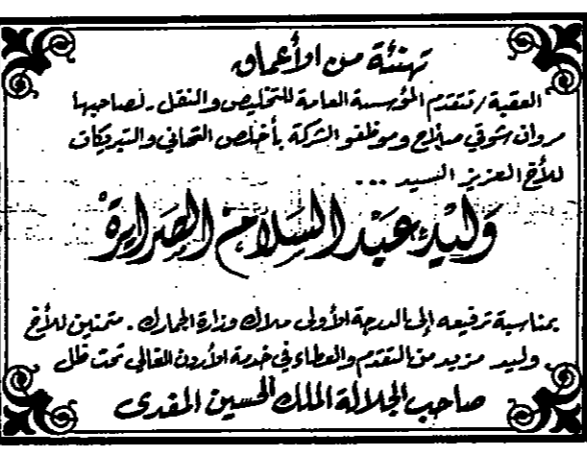 تهنئة من الأعماق
العقبة / تتقدم المؤسسة العامة للتخليص والنقل . لصاحبها
مروان شوقي مسلّم وموظفو الشركة بأخلص التهاني والتبريكات
للأخ العزيز السيد ...
وليد عبد السلام الصرايرة
بمناسبة ترقيعه إلى الدرجة الأولى ملاك وزارة الجمارك . متمنين للأخ
وليد مزيد من التقدم والعطاء في خدمة الأردن الغالي تحت ظل
صاحب الجلالة الملك الحسين المفدى